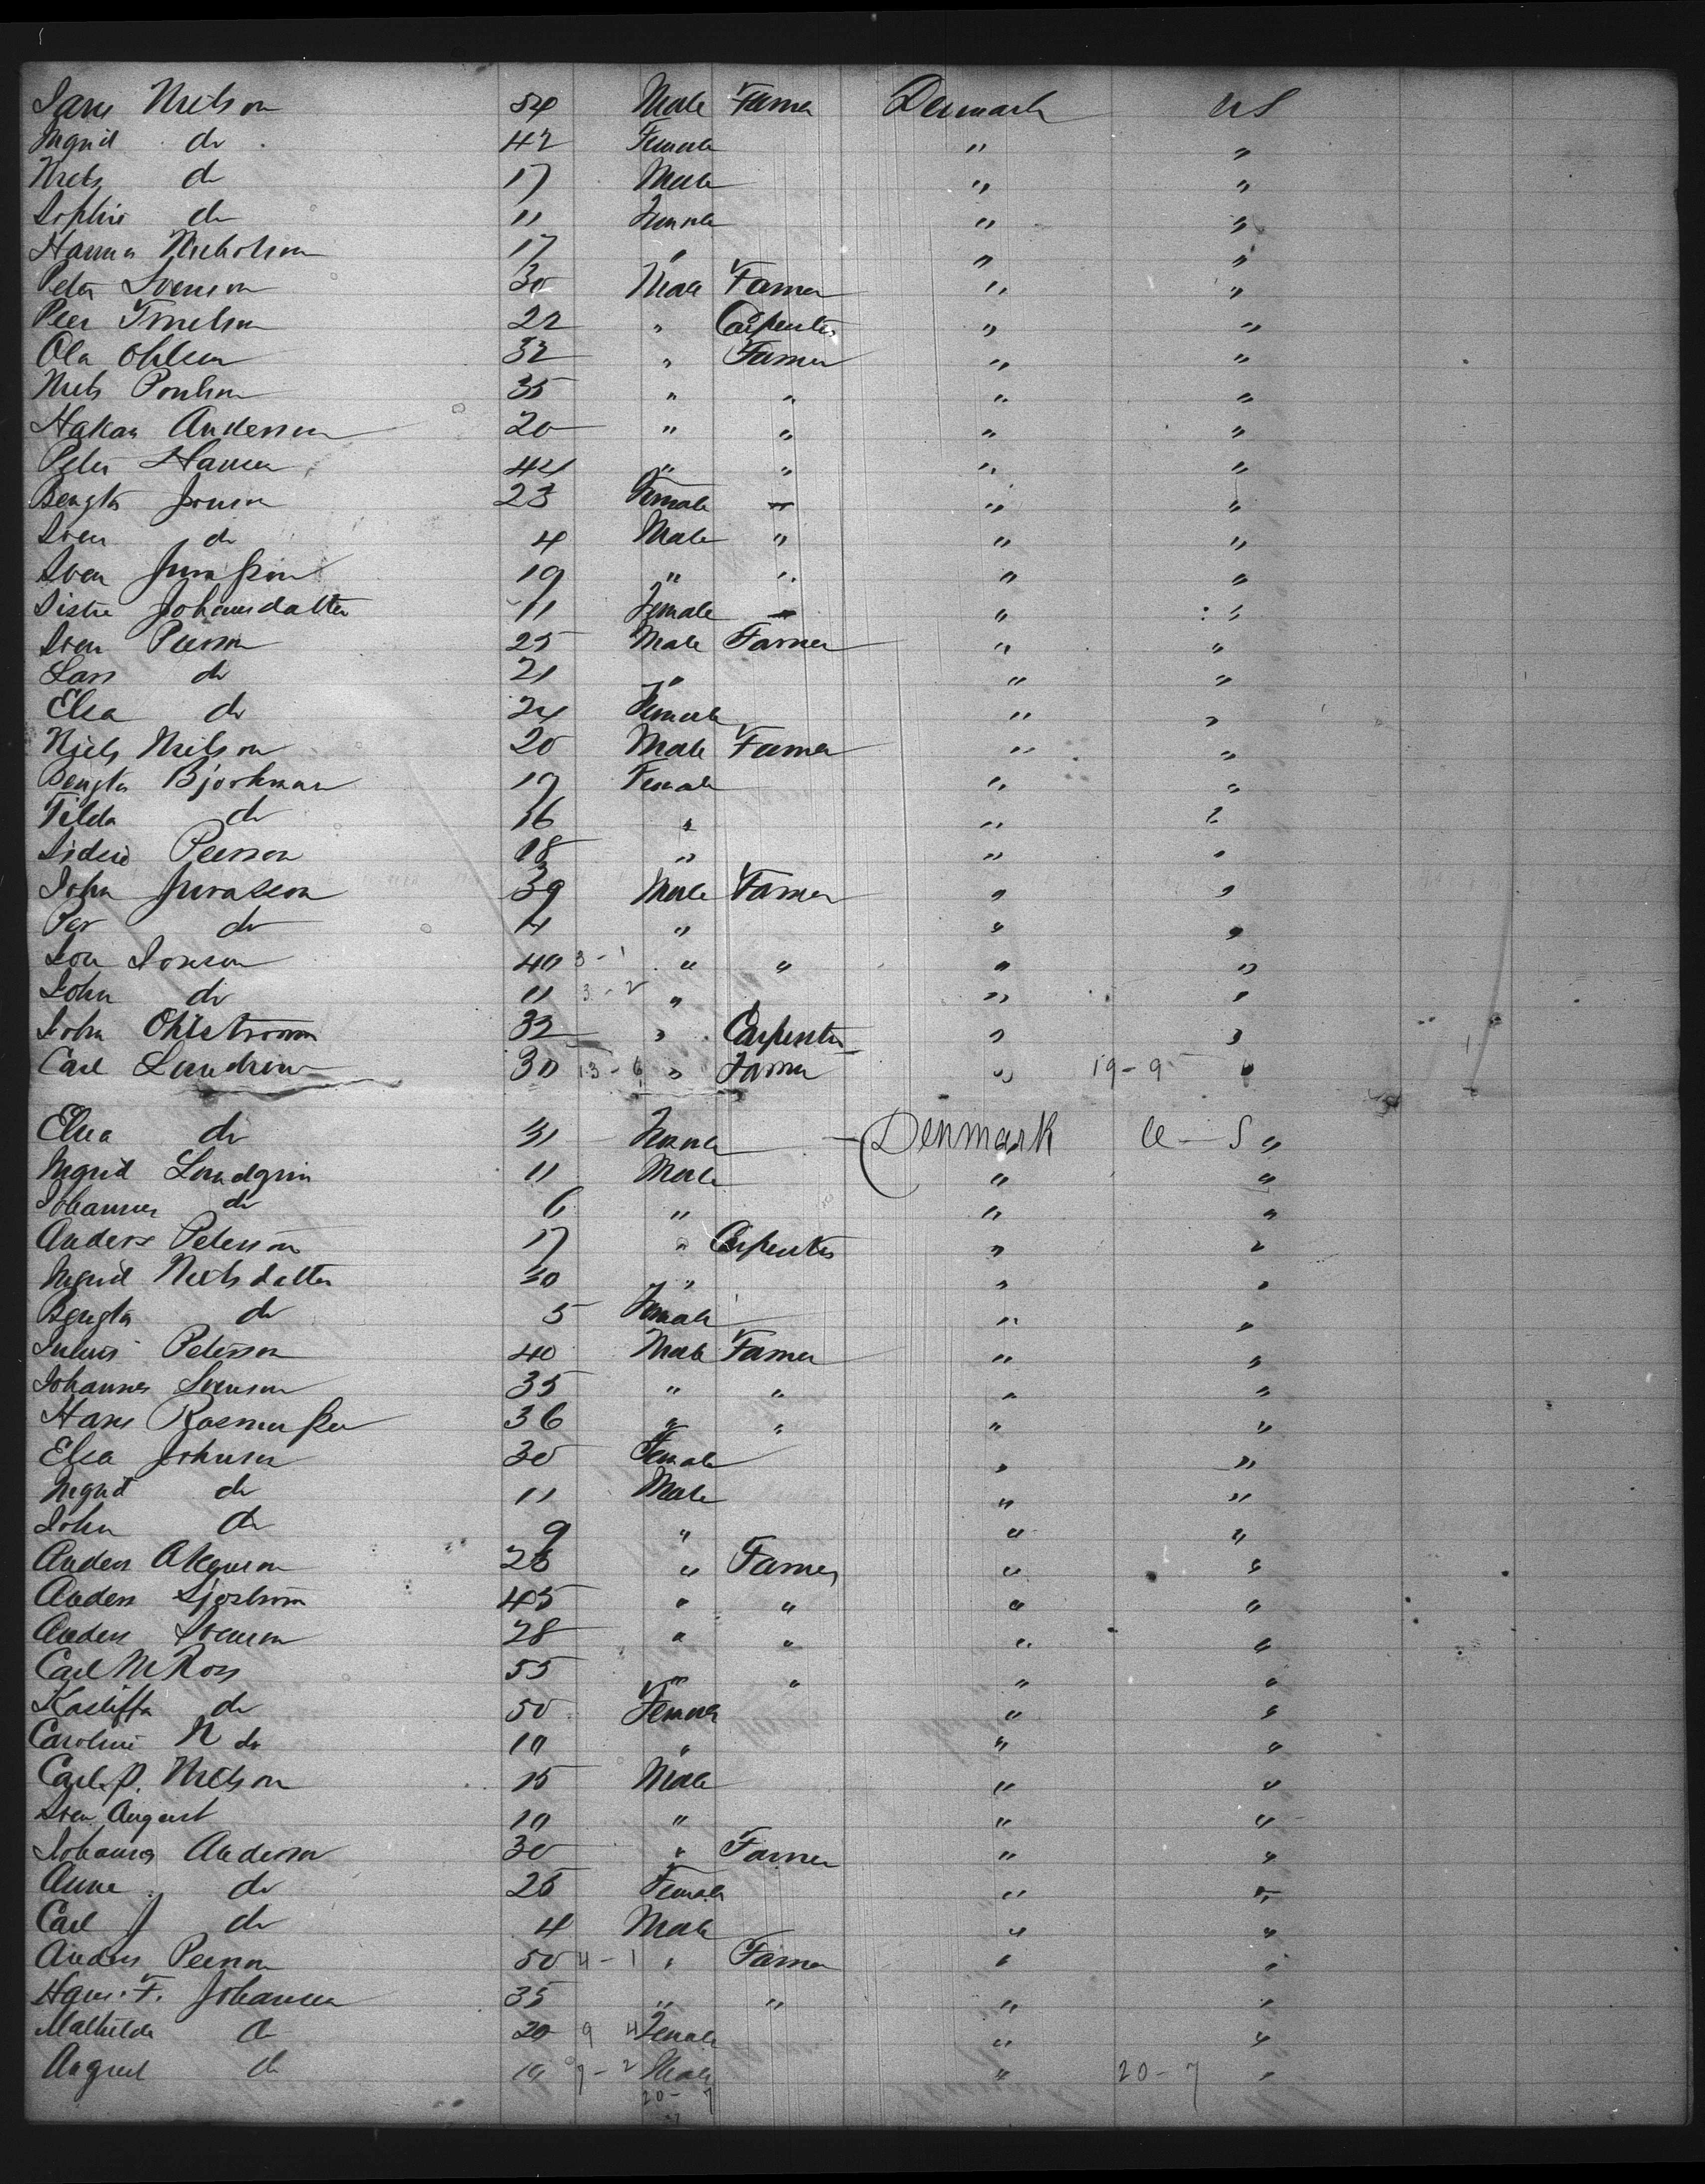 Jans Nielson 54 Male Farmer Denmark US
Ingrid do 42 Female " "
Niels do 17 Male " "
Sophie do 11 Female " "
Hanna Nicholson 17 " " "
Peter Svenson 30 Male Farmer " "
Peer 22 " Carpenter " "
Ola Ohlson 32 " Farmer " "
Niels Poulson 35 " " " "
Hakan Anderson 20 " " " "
Peter Hansen 44 " " " "
Bengta Jonson 23 Female " " "
Sven do 4 Male " " "
Sven 19 " " " "
Johansdatter 11 Female " "
Sven Peerson 25 Male Farmer " "
Lars do 21 " " "
Elsa do 24 Female " "
Niels Nielson 20 Male Farmer " "
Bengta Bjorkman 19 Female " "
Tilda do 16 " " "
Peerson 18 " " "
John 39 Male Farmer " "
Per do 4 " " "
40 3 - 1 " " " "
John do 11 3 - 2 " " "
John Ohlstrom 32 " Carpenter " "
Carl 30 13 - 6 " Farmer " 19 - 9 "
Elsa do 31 Female - Denmark U - S "
Ingrid Lundgrin 11 Male " "
Johannes do 6 " " "
Anders Peterson 17 " Carpenter " "
Ingrid Nielsdatter 30 " " "
Bengta do 5 Female " "
Peterson 40 Male Farmer " "
Johannes Svenson 35 " " " "
Hans Rasmußen 36 " " " "
Elsa Johnson 30 Female " "
Ingrid do 11 Male " "
John do 9 " " "
Anders 28 " Farmer " "
Anders Sjostrom 45 " " " "
Anders Svenson 28 " " " "
Carl M Ross 55 " " " "
do 50 Female " "
Caroline N do 10 " " "
Carl. P. Nielson 15 Male " "
Sven August 10 " " "
Johannes Anderson 30 " Farmer " "
Anne do 25 Female " "
Carl J do 4 Male " "
Anders Peerson 50 4 - 1 " Farmer " "
Hans. F. Johansen 35 " " " "
Mathilde do 20 9 4 Female " "
August do 10 7 - 2 Male " 20 - 7 "
20 - 7